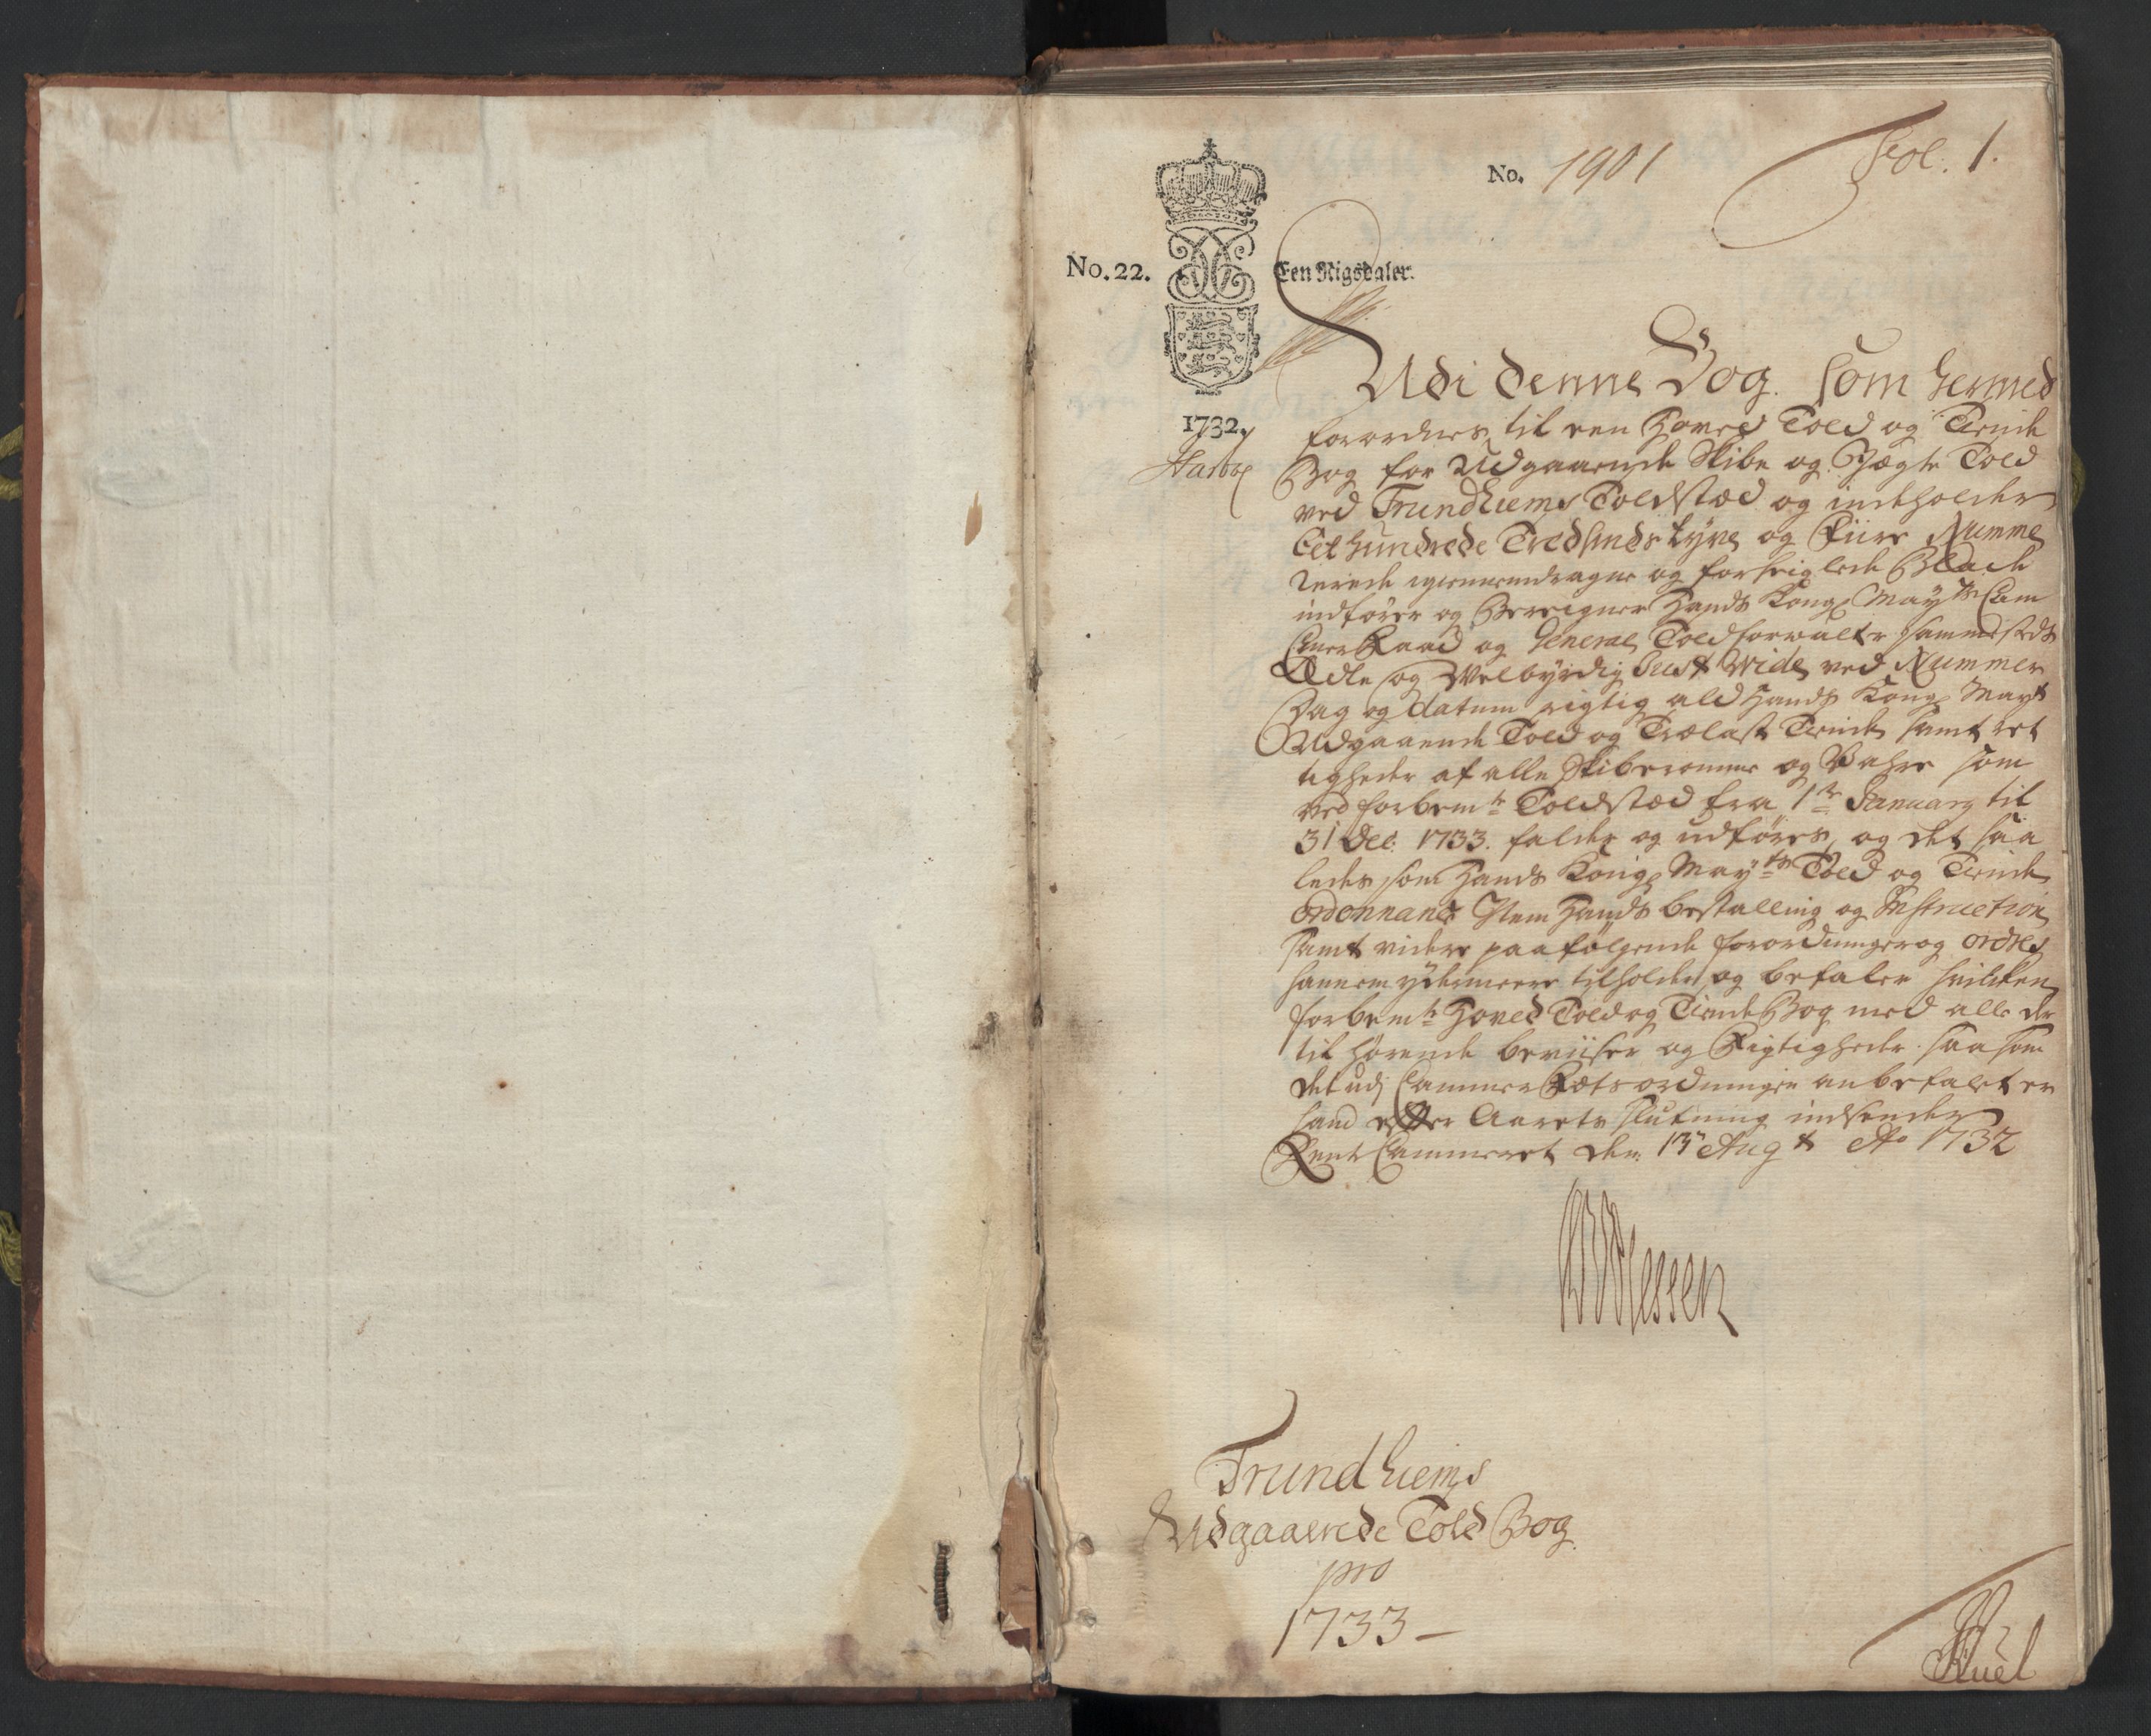 No. 1901
Fol. 1.
No. 22.
Een Rigsdaler.
1732.
Udi denne Bog som hermed
forordnes til een Hoved Told og Tiende
Bog for Udgaaende Skibe og Jægte Told
ved Trundhiems Toldstæd og indeholder
Eet hundrede Tredsindstyve og Fiire Numme
rerede igiennemdragne og forseiglede Blade
indfører og Beregner Hands Kongl May.ts Cam
mer Raad og General Toldforvalter sammesteds
Ædle og Velbyrdig Just Wide ved Nummer
Dag og datum rigtig ald Hands Kongl Mayts
Udgaaende Told og Trælast Tiende samt ret
tigheder af alle Skiberomme og Vahre som
ved forbemte Toldstæd fra 1te January til
31 Dec. 1733. falder og udføres, og det saa
ledes som Hands Kongl May.ts Told og Tiende
Ordonnance Item Hands bestalling og Instruction
samt videre paafølgende forordninger og ordres
hannem ydermeere tilholder og befaler hvilcken
forbemte Hoved Told og Tiende Bog med alle der
til hørende beviiser og Rigtigheder saasom
det udj Cammer Rætsordningen anbefalet er
hand efter Aarets slutning indsender
Rente Cammeret den 13 Augt Ao 1732
Trundhiems
Udgaaende Told Bog
pro
1733 –